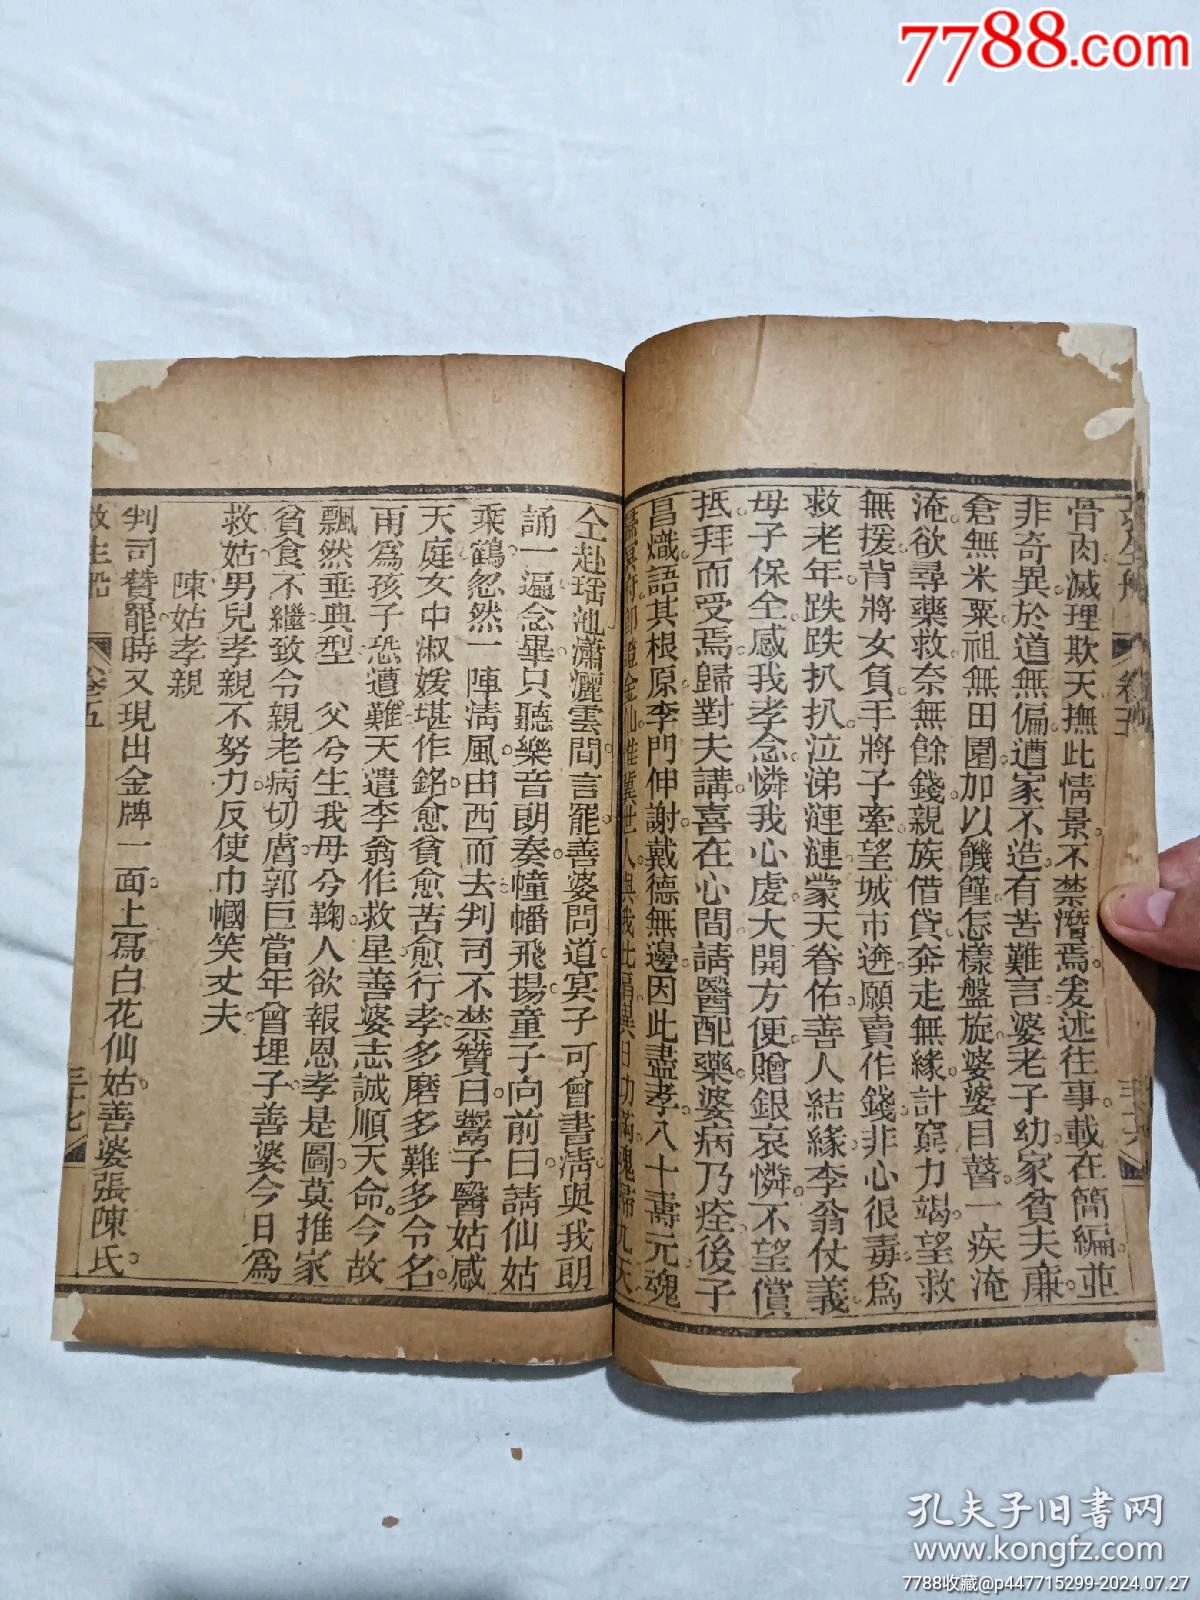 7788.com
骨肉滅理欺天撫此情景不禁潛焉爰述往事載在簡編並
非奇異於道無偏遭家不造有苦難言婆老子幼家貧夫廉
倉無米粟祖無田園加以饑饉怎樣盤旋婆婆目瞽一疾淹
淹欲尋藥救奈無餘錢親族借貸奔走無緣計窮力竭望救
無援背將女負手將子牽望城市遊願賣作錢非心很毒為
救老年跌跌扒扒泣涕漣漣蒙天眷佑善人結緣李翁仗義
母子保全感我孝念憐我心虔大開方便贈銀哀憐不望償
抵拜而受焉歸對夫講喜在心間請醫配藥婆病乃痊後子
昌熾語其根原李門伸謝戴德無邊因此盡孝八十壽元魂
歸冥府金仙世人與我九天
卷五
仝赴瑶池瀟灑雲間言罷善婆問道冥子可曾書淸與我朗
誦一遍念畢只聽樂音朗奏幢幡飛揚童子向前曰請仙姑
乘鶴忽然一陣淸風由西而去判司不禁贊曰鬻子醫姑感
天庭女中淑媛堪作銘愈貧愈苦愈行孝多磨多難多令名
雨為孩子恐遭難天遣李翁作救星善婆志誠順天命今故
飄然垂典型 父兮生我母兮鞠人欲報恩孝是圖莫推家
貧食不繼致令親老病切膚郭巨當年曾埋子善婆今日為
救姑男兒孝親不努力反使巾幗笑丈夫
陳姑孝親
判司贊罷時又現出金牌一面上寫白花仙姑善婆張陳氏
救生船 卷五 三十七
孔夫子旧书网
www.kongfz.com
7788收藏@p447715299-2024.07.27